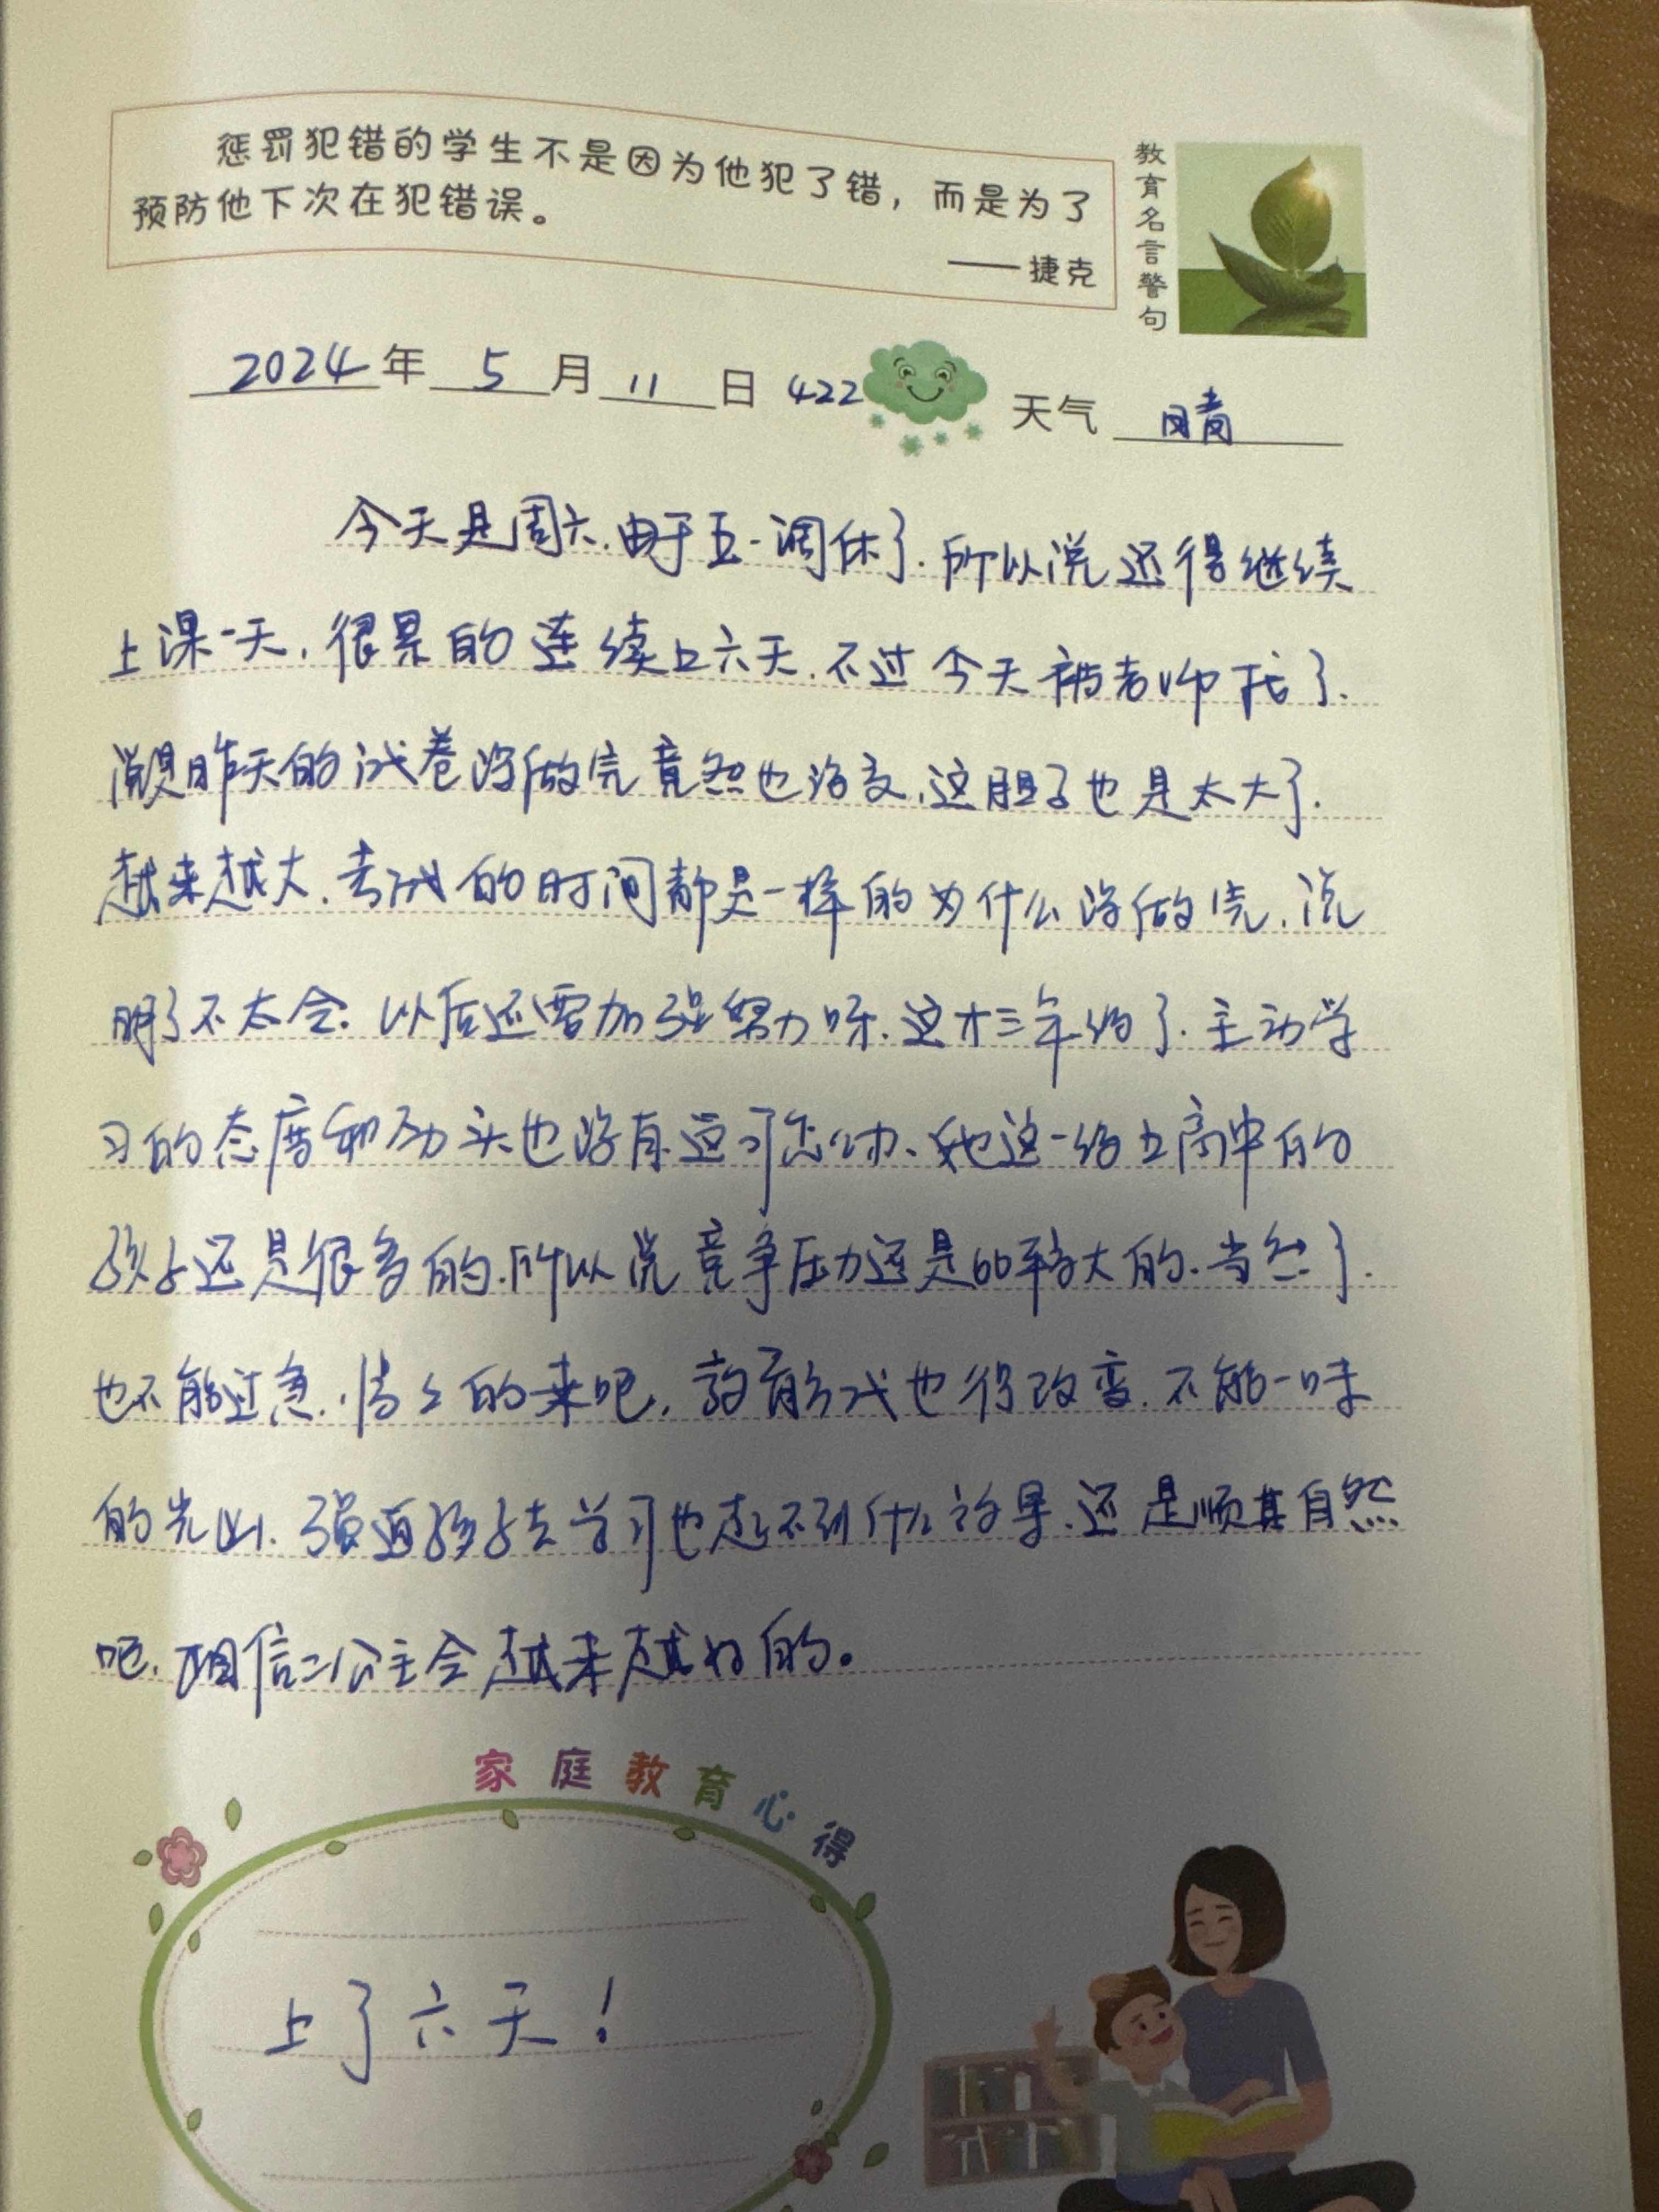 惩罚犯错的学生不是因为他犯了错，而是为了
预防他下次在犯错误。
——捷克
教育名言警句
2024年 5月 11日 422 天气 晴
今天是周六.由于五一调休了.所以说还得继续
上课一天,很累的连续上六天.不过今天被老师批了.
说是昨天的试卷没做完竟然也没交,这胆子也是太大了.
越来越大.考试的时间都是一样的为什么没做完.说
明了不太会.以后还需加强努力呀.这才三年级了.主动学
习的态度和劲头也没有这可怎么办、她这一级上高中的
孩子还是很多的.所以说竞争压力还是比较大的.当然了.
也不能过急.慢々的来吧,教育方式也得改变.不能一味
的 强迫孩子去学习也起不到什么效果.还是顺其自然
吧.相信二公主会越来越好的。
家庭教育心得
上了六天！